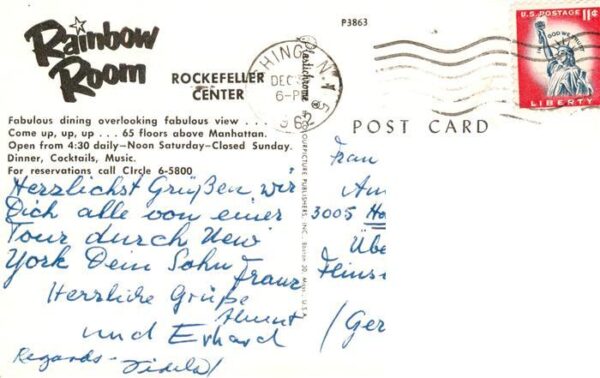 Rainbow Room
ROCKEFELLER CENTER
Fabulous dining overlooking fabulous view . . .
Come up, up, up . . . 65 floors above Manhattan.
Open from 4:30 daily—Noon Saturday—Closed Sunday.
Dinner, Cocktails, Music.
For reservations call CIrcle 6-5800
Herzlichst Grüßen wir
Dich alle von einer
Tour durch New
York Dein Sohn Franz
Herzliche Grüße
und Erhard
Regards -
P3863
Plastichrome ®
COLOURPICTURE PUBLISHERS, INC., BOSTON 30, MASS., U.S.A.
HING N.Y.
DEC
6-P
U.S. POSTAGE 11¢
IN GOD WE TRUST
LIBERTY
POST CARD
Frau
3005
Übe
(Ger